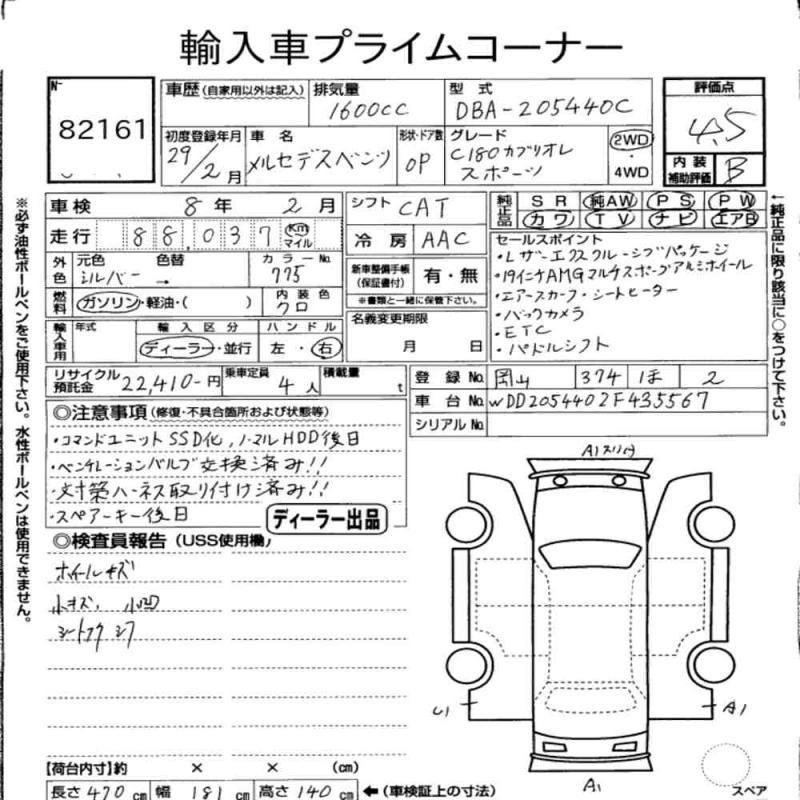 輸入車プライムコーナー
№ 82161
車歴(自家用以外は記入) 排気量 1600cc 型式 DBA-205440C
評価点 4.5
初度登録年月 29/2月 車名 メルセデスベンツ 形状・ドア数 OP グレード C180カブリオレ スポーツ 2WD・4WD
内装補助評価 B
車検 8年 2月 シフト CAT 純正品 SR 純AW PS PW
カワ TV ナビ エアB
走行 88,037 Km マイル 冷房 AAC
外色 元色 シルバー 色替 → カラーNo. 775
新車整備手帳(保証書付) 有・無
※書類と一緒に保管下さい。
燃料 ガソリン・軽油・( ) 内装色 クロ
名義変更期限 月 日
輸入車用 年式 輸入区分 ディーラー・並行 ハンドル 左・右
セールスポイント
・レザーエクスクルーシブパッケージ
・19インチAMGマルチスポークアルミホイール
・エアースカーフ・シートヒーター
・バックカメラ
・ETC
・パドルシフト
リサイクル預託金 22,410-円 乗車定員 4人 積載量 t
登録No. 岡山 374 1ほ 2
車台No. WDD2054402F435567
シリアルNo.
◎注意事項(修復・不具合箇所および状態等)
・コマンドユニットSSD化,ノーマルHDD後日
・ベンチレーションバルブ交換済み!!
・対策ハーネス取り付け済み!!
・スペアーキー後日
ディーラー出品
◎検査員報告(USS使用欄)
ホイールキズ
小キズ、小凹
シートスレ シワ
A1スリ(ハ)
U1
A1
A1
スペア
【荷台内寸】約 × × (cm)
長さ 470 cm 幅 181 cm 高さ 140 cm ←(車検証上の寸法)
※必ず油性ボールペンをご使用下さい。水性ボールペンは使用できません。
←純正品に限り該当に○をつけて下さい。